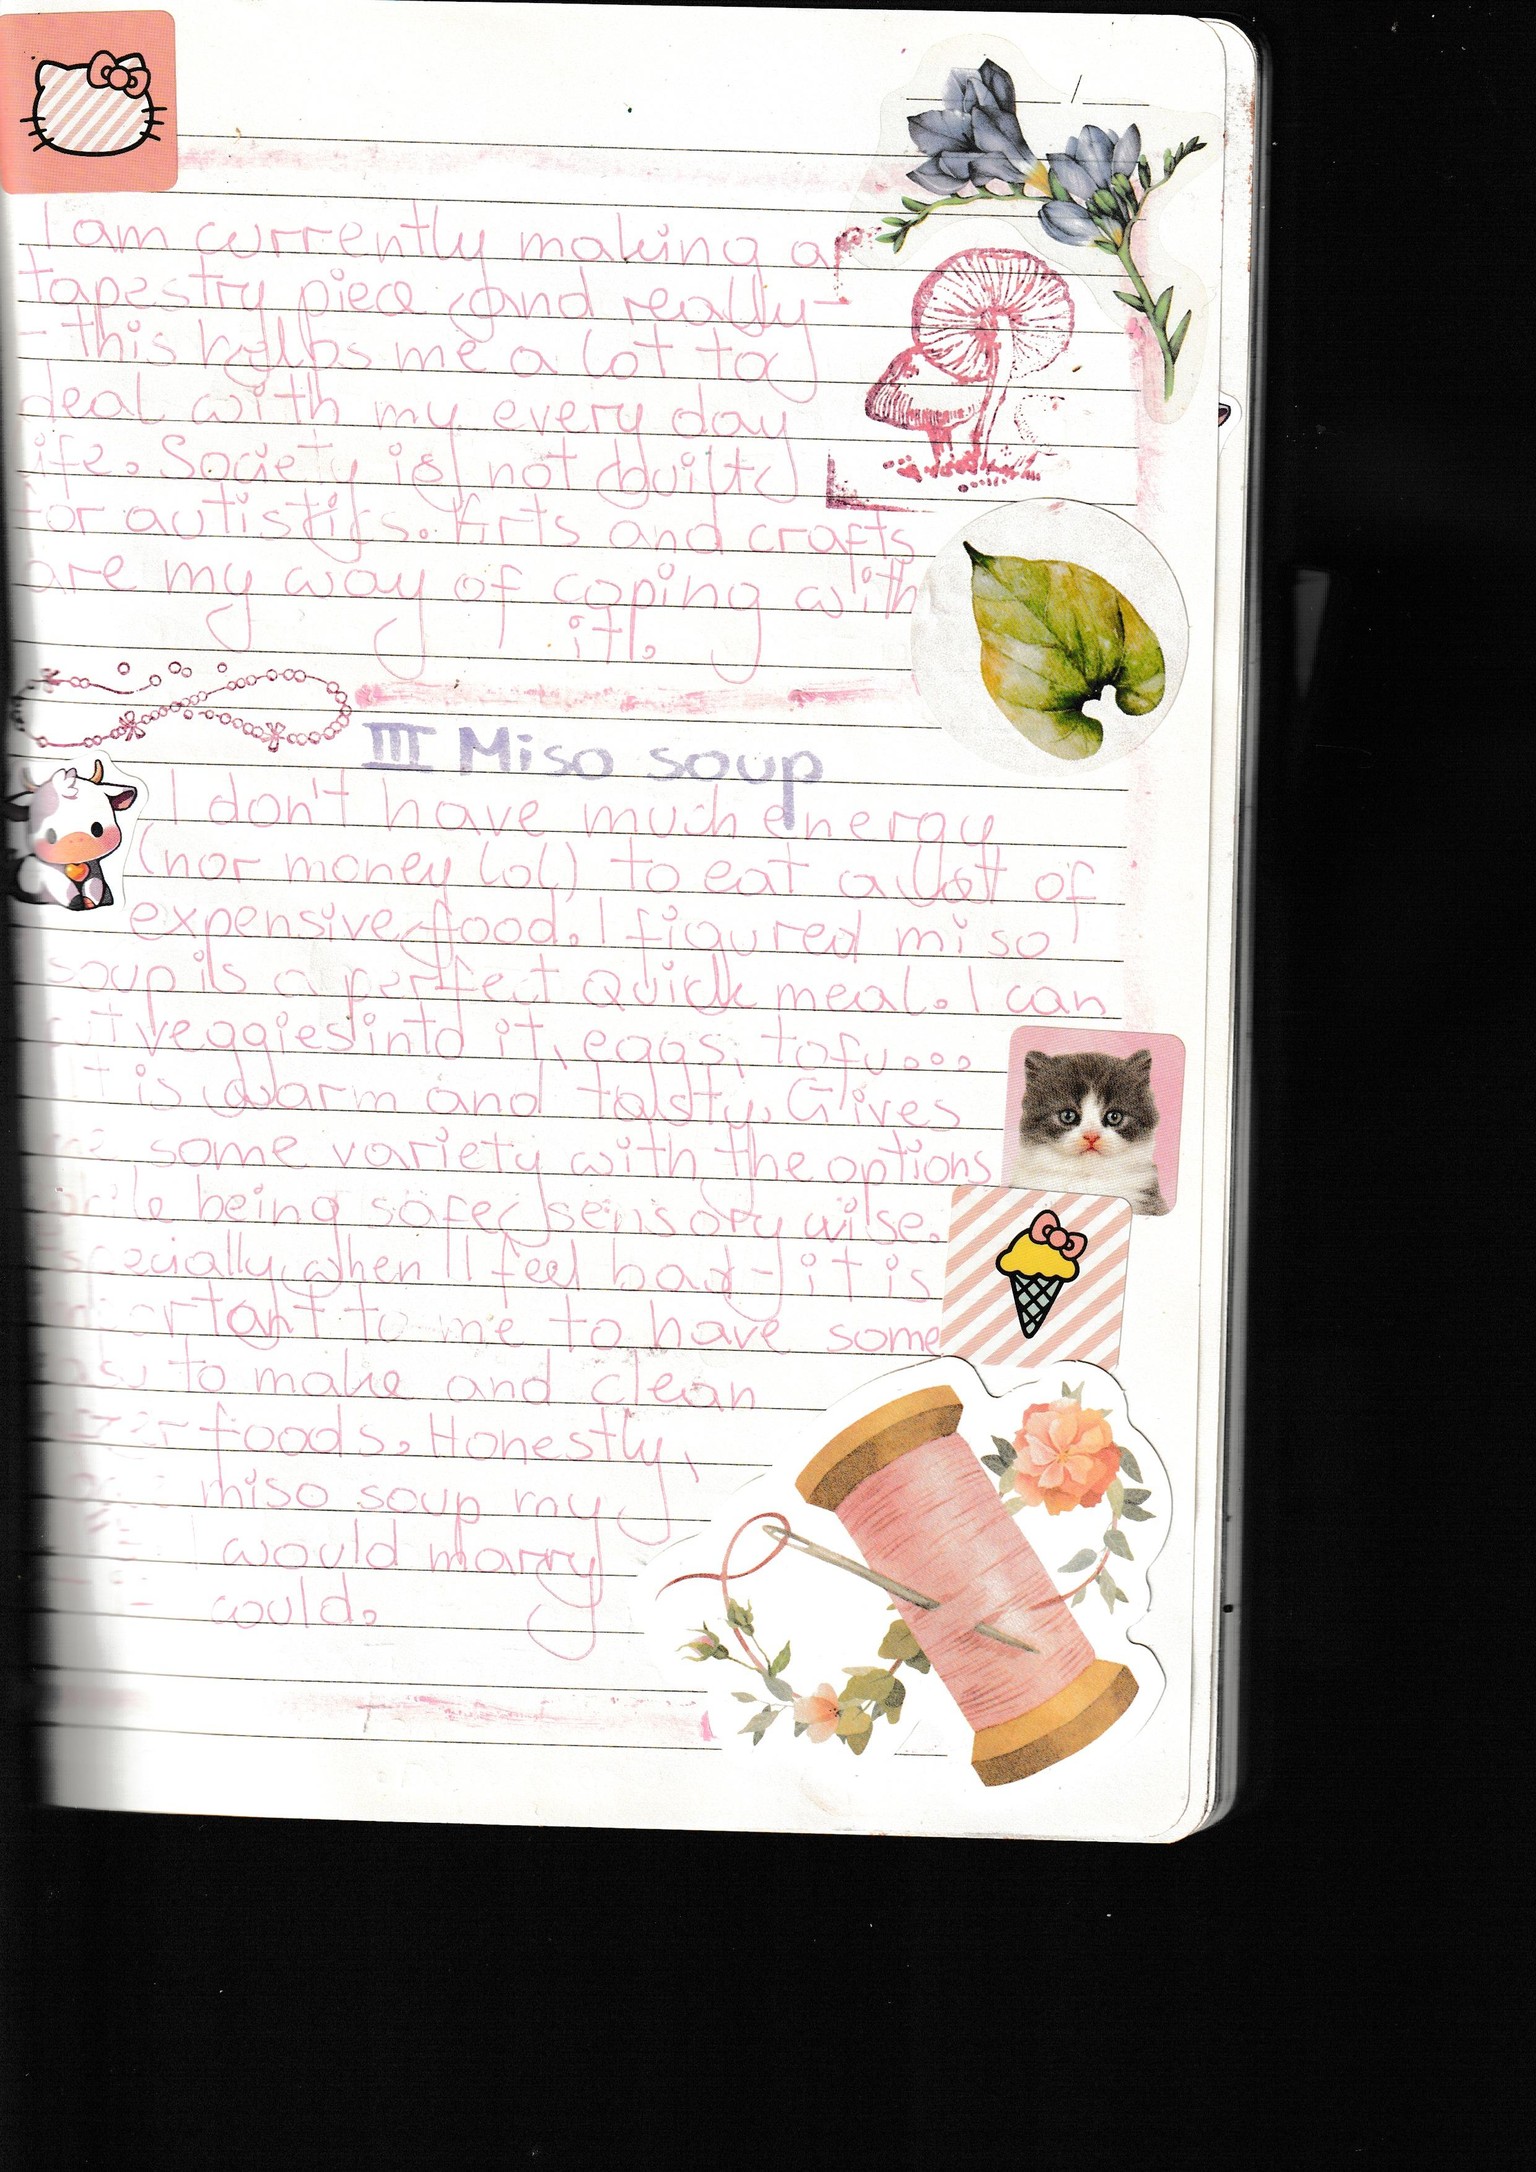 I am currently making a
tapestry piece and really -
- this helps me a lot to
deal with my every day
life. Society is not built
for autistics. Arts and crafts
are my way of coping with
it.
III Miso soup
I don't have much energy
(nor money lol) to eat a lot of
expensive food. I figured miso
soup is a perfect quick meal. I can
veggies into it, eggs, tofu...
It is warm and tasty. Gives
me some variety with the options
while being safe sensory wise.
Especially when I feel bad - it is
important to me to have some
easy to make and clean
foods. Honestly,
miso soup my
would marry
could.